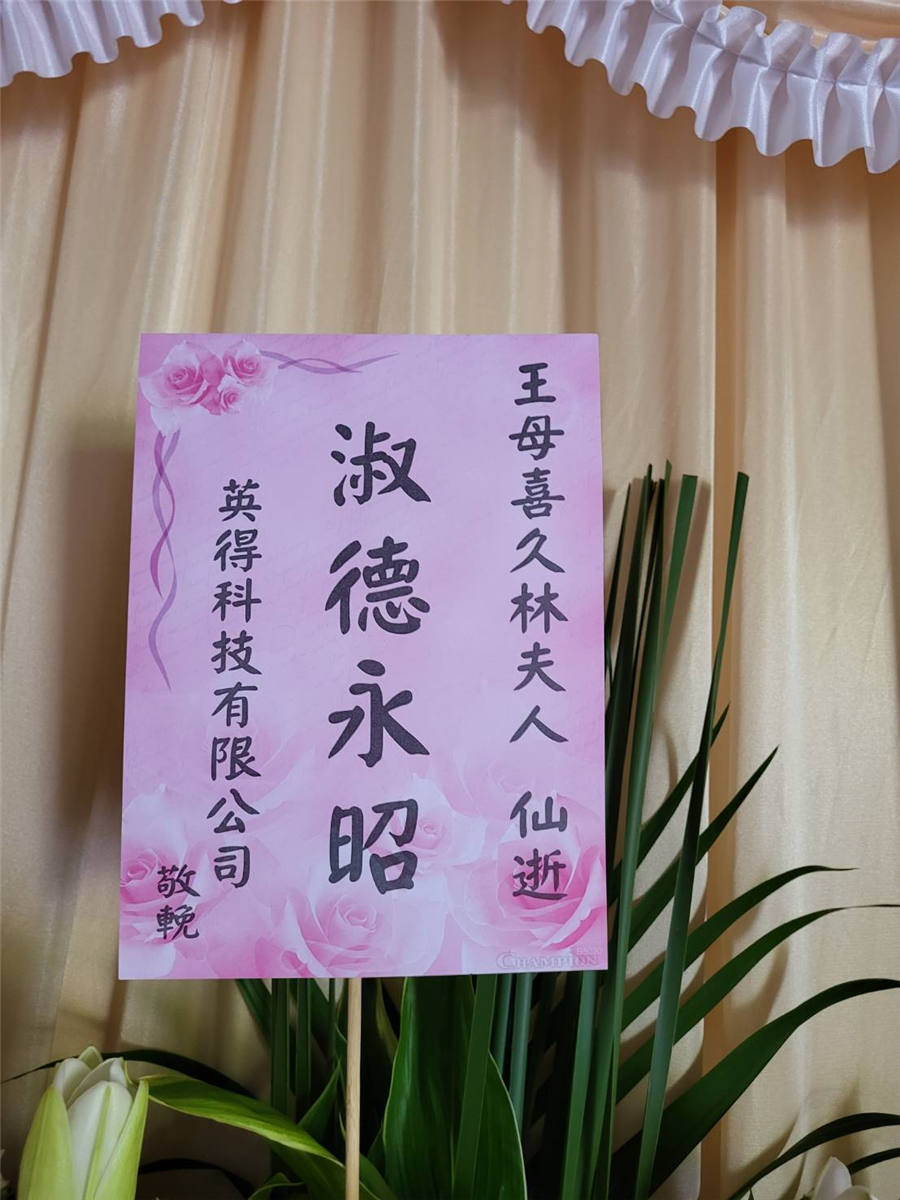 王母喜久林夫人 仙逝
淑德永昭
英得科技有限公司
敬輓
CHAMPION